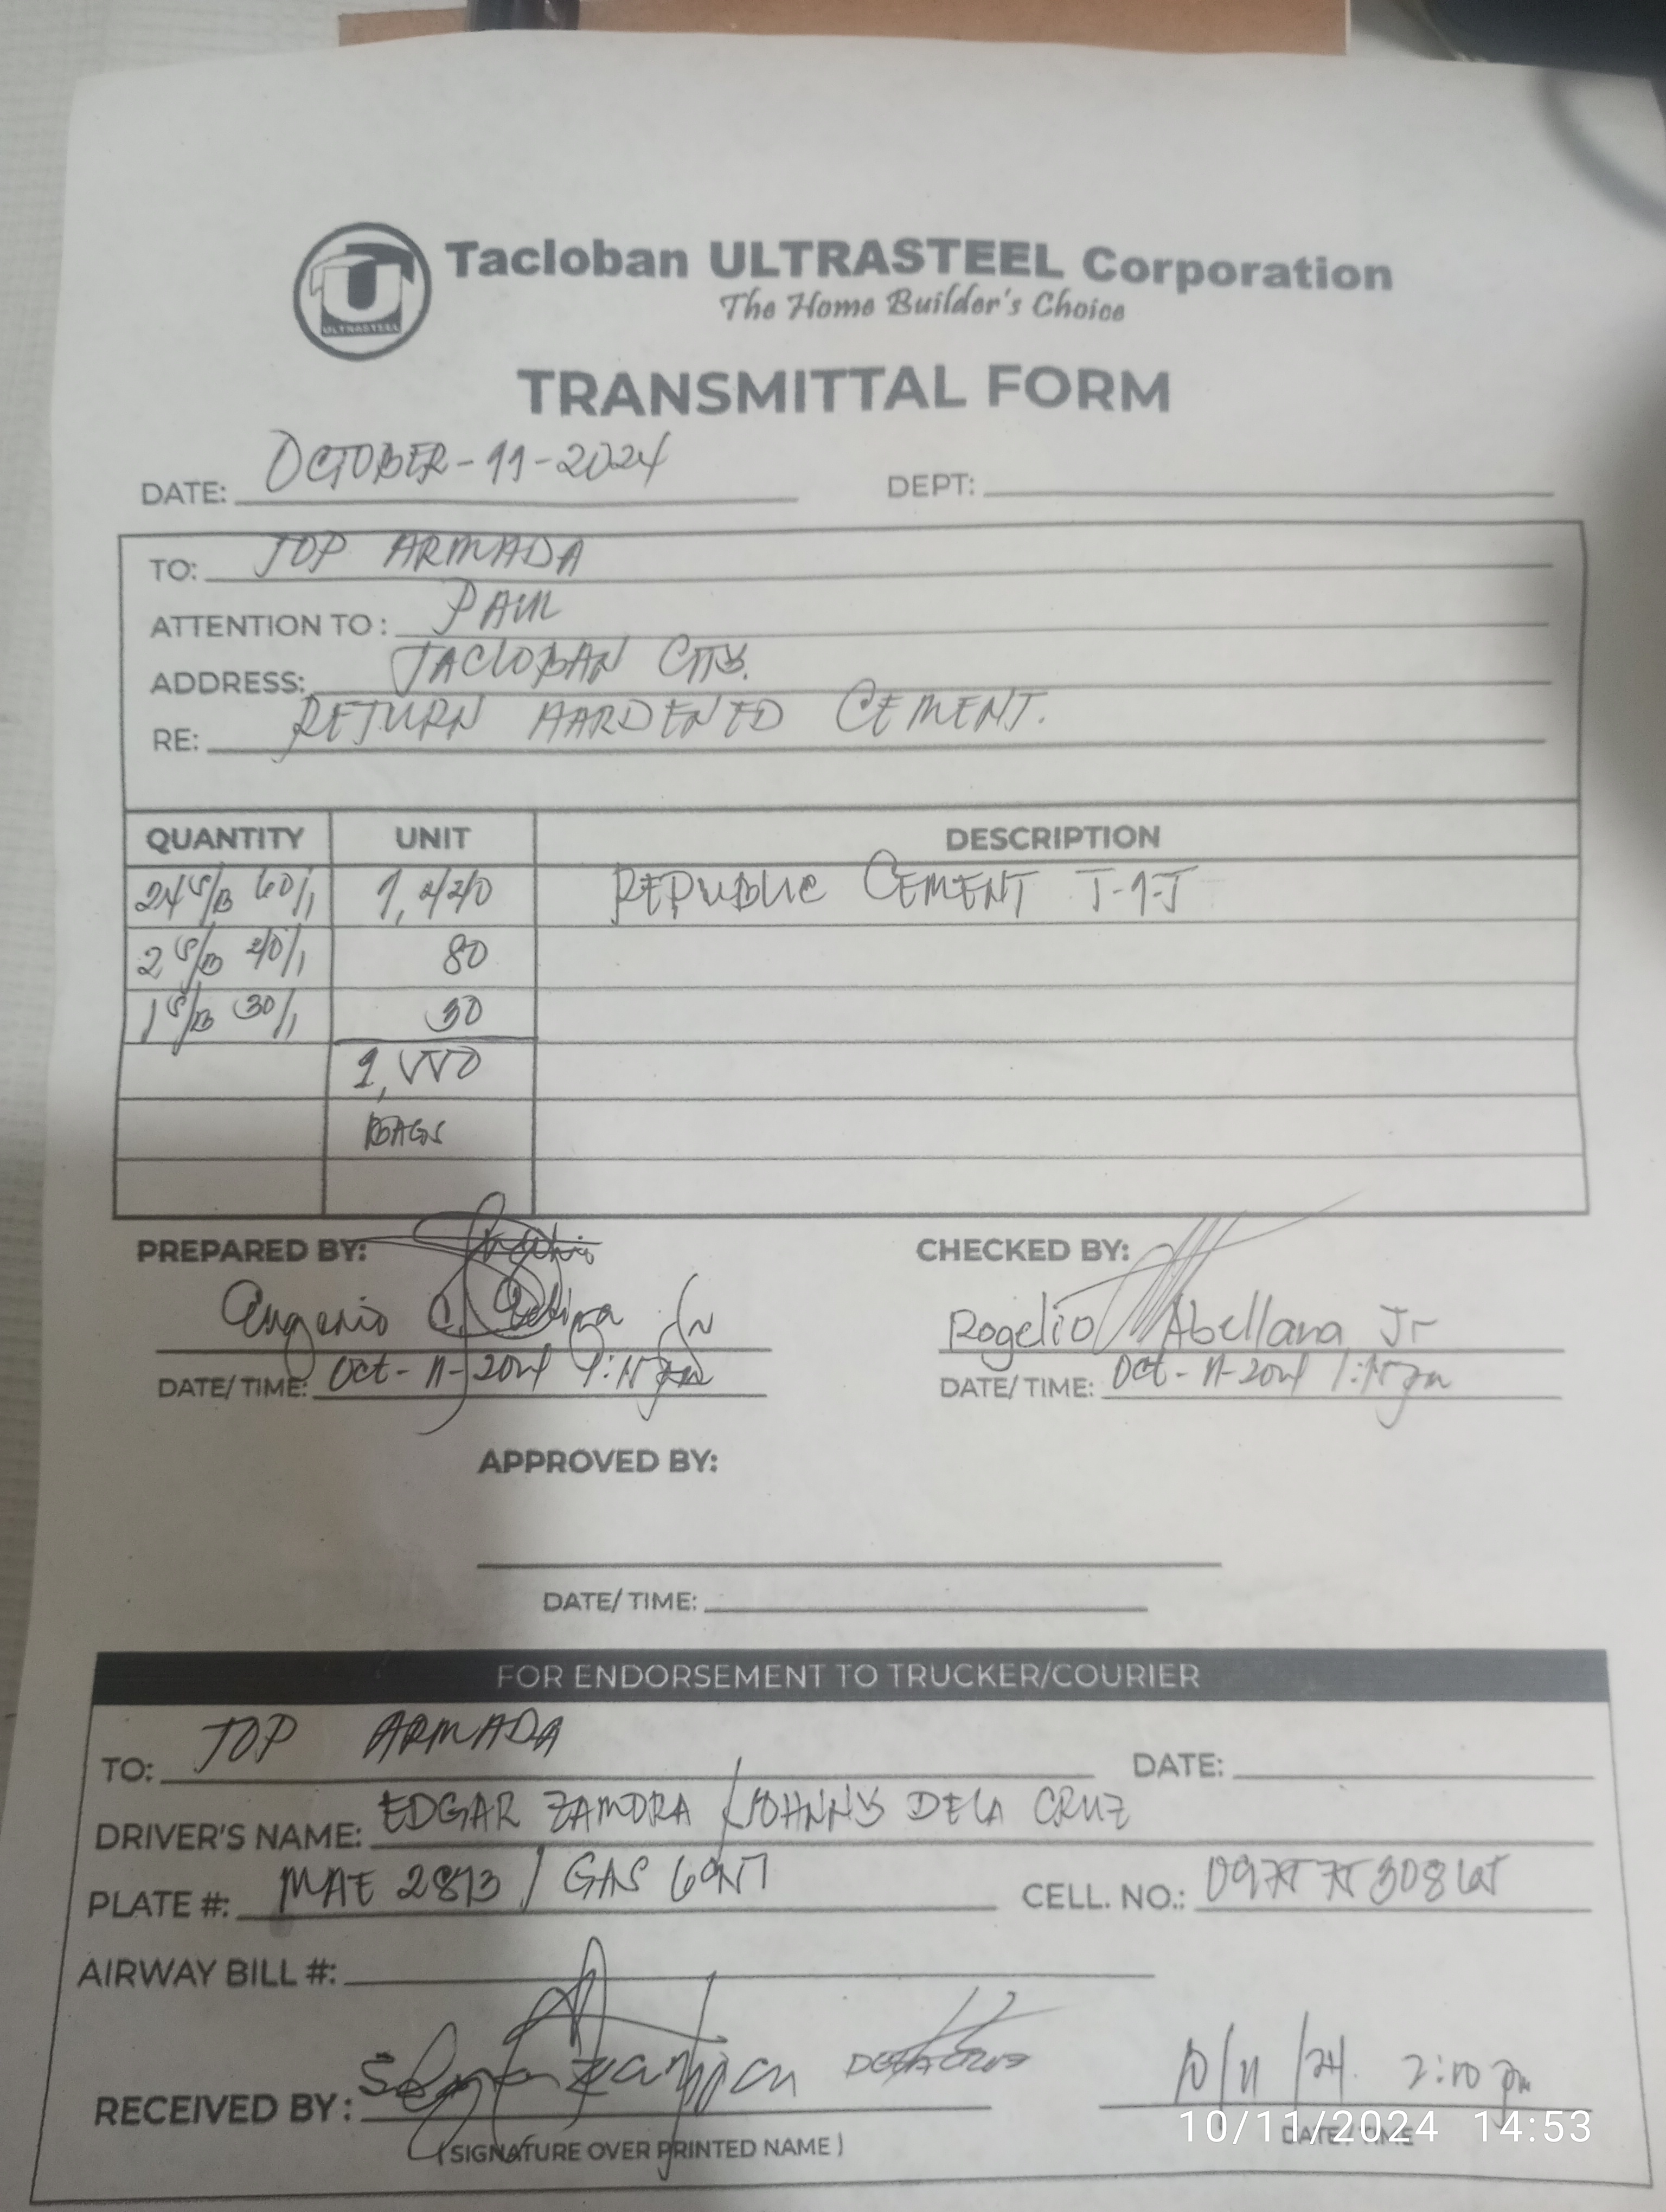 ULTRASTEEL
Tacloban ULTRASTEEL Corporation
The Home Builder's Choice
TRANSMITTAL FORM
DATE: OCTOBER-11-2024 DEPT:
TO: TOP ARMADA
ATTENTION TO: PAUL
ADDRESS: TACLOBAN CITY.
RE: RETURN HARDENED CEMENT.
QUANTITY UNIT DESCRIPTION
24 S/B 60/1 1,440 REPUBLIC CEMENT T-1-J
2 S/B 40/1 80
1 S/B 30/1 30
1,550
BAGS
PREPARED BY: CHECKED BY:
Eugenio Jr Rogelio Abellana Jr
DATE/TIME: Oct-11-2024 1:15pm DATE/TIME: Oct-11-2024 1:15pm
APPROVED BY:
DATE/TIME:
FOR ENDORSEMENT TO TRUCKER/COURIER
TO: TOP ARMADA DATE:
DRIVER'S NAME: EDGAR ZAMORA / JOHNNY DELA CRUZ
PLATE #: MAE 2873 / GAS 6957 CELL. NO.:
AIRWAY BILL #:
RECEIVED BY: DELA CRUZ 10/11/24. 2:10 pm
(SIGNATURE OVER PRINTED NAME) DATE/TIME
10/11/2024 14:53